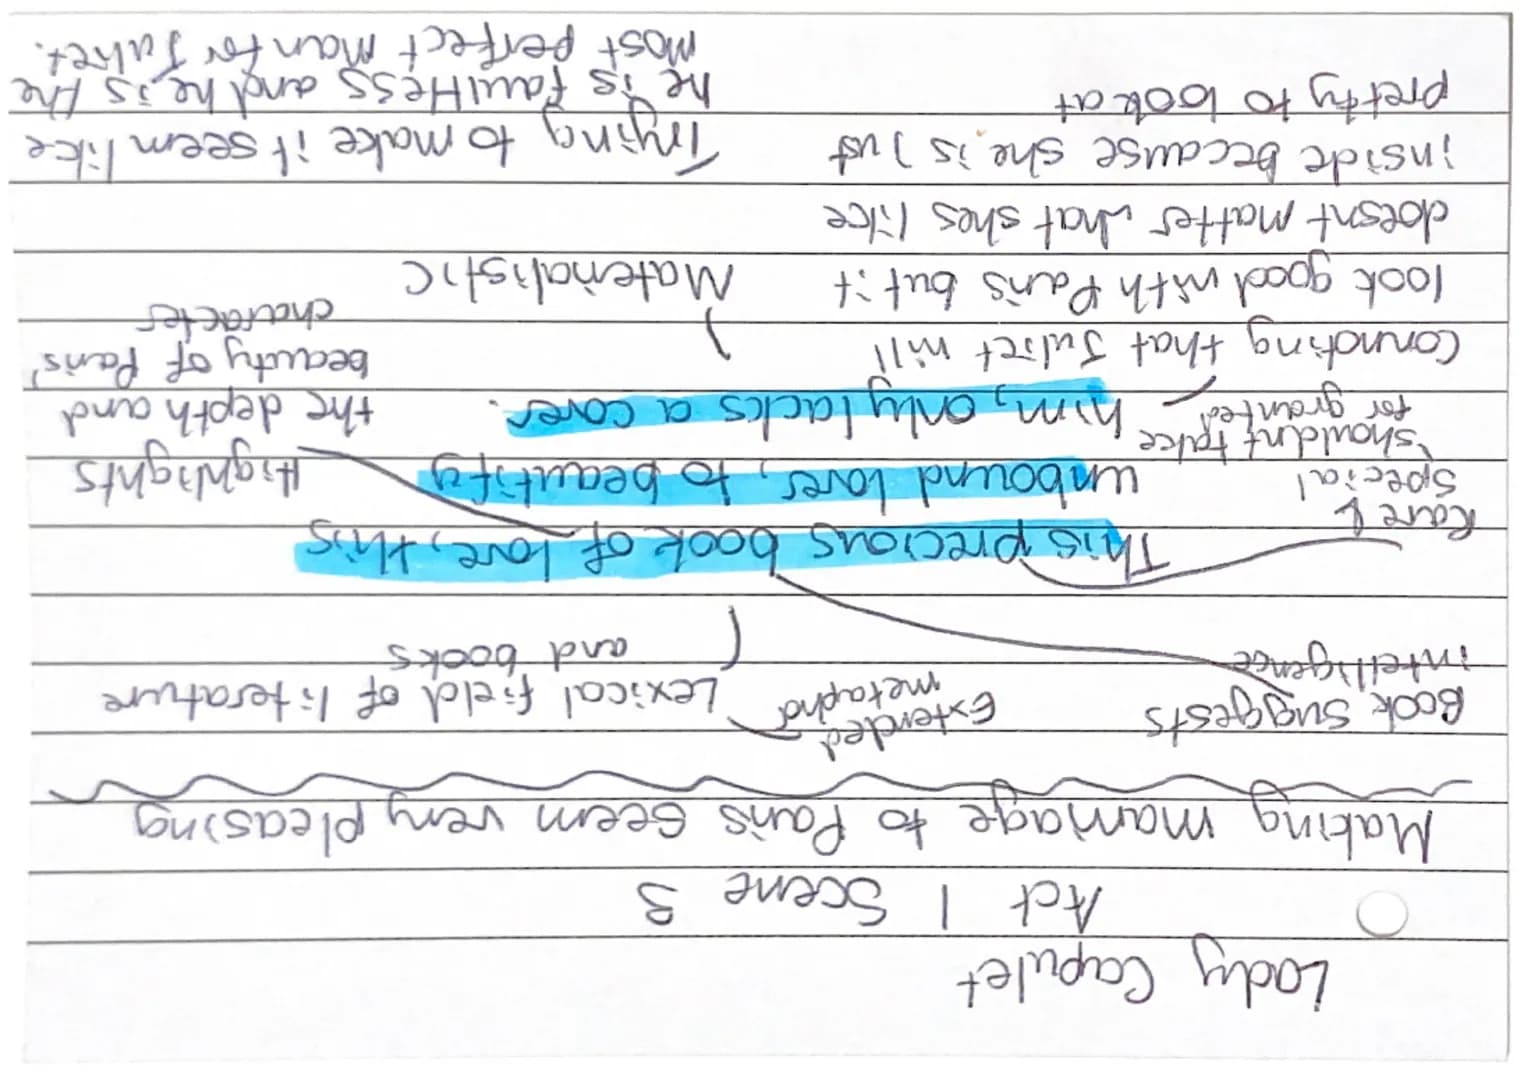 Lady Capulet
Act 1 Scene 3
Making marriage to Paris seem very pleasing
Book suggests
intelligence
Extended
metaphor
Lexical field of literature
and books
Rare &
special
shouldnt take
for granted
This precious book of love, this
unbound lover, to beautify
him, only lacks a cover.
Highlights
the depth and
beauty of Paris'
character
Connoting that Juliet will
look good with Paris but it
doesnt matter what shes like
inside because she is just
pretty to look at
Materialistic
Trying to make it seem like
he is faultless and he is the
most perfect man for Juliet.